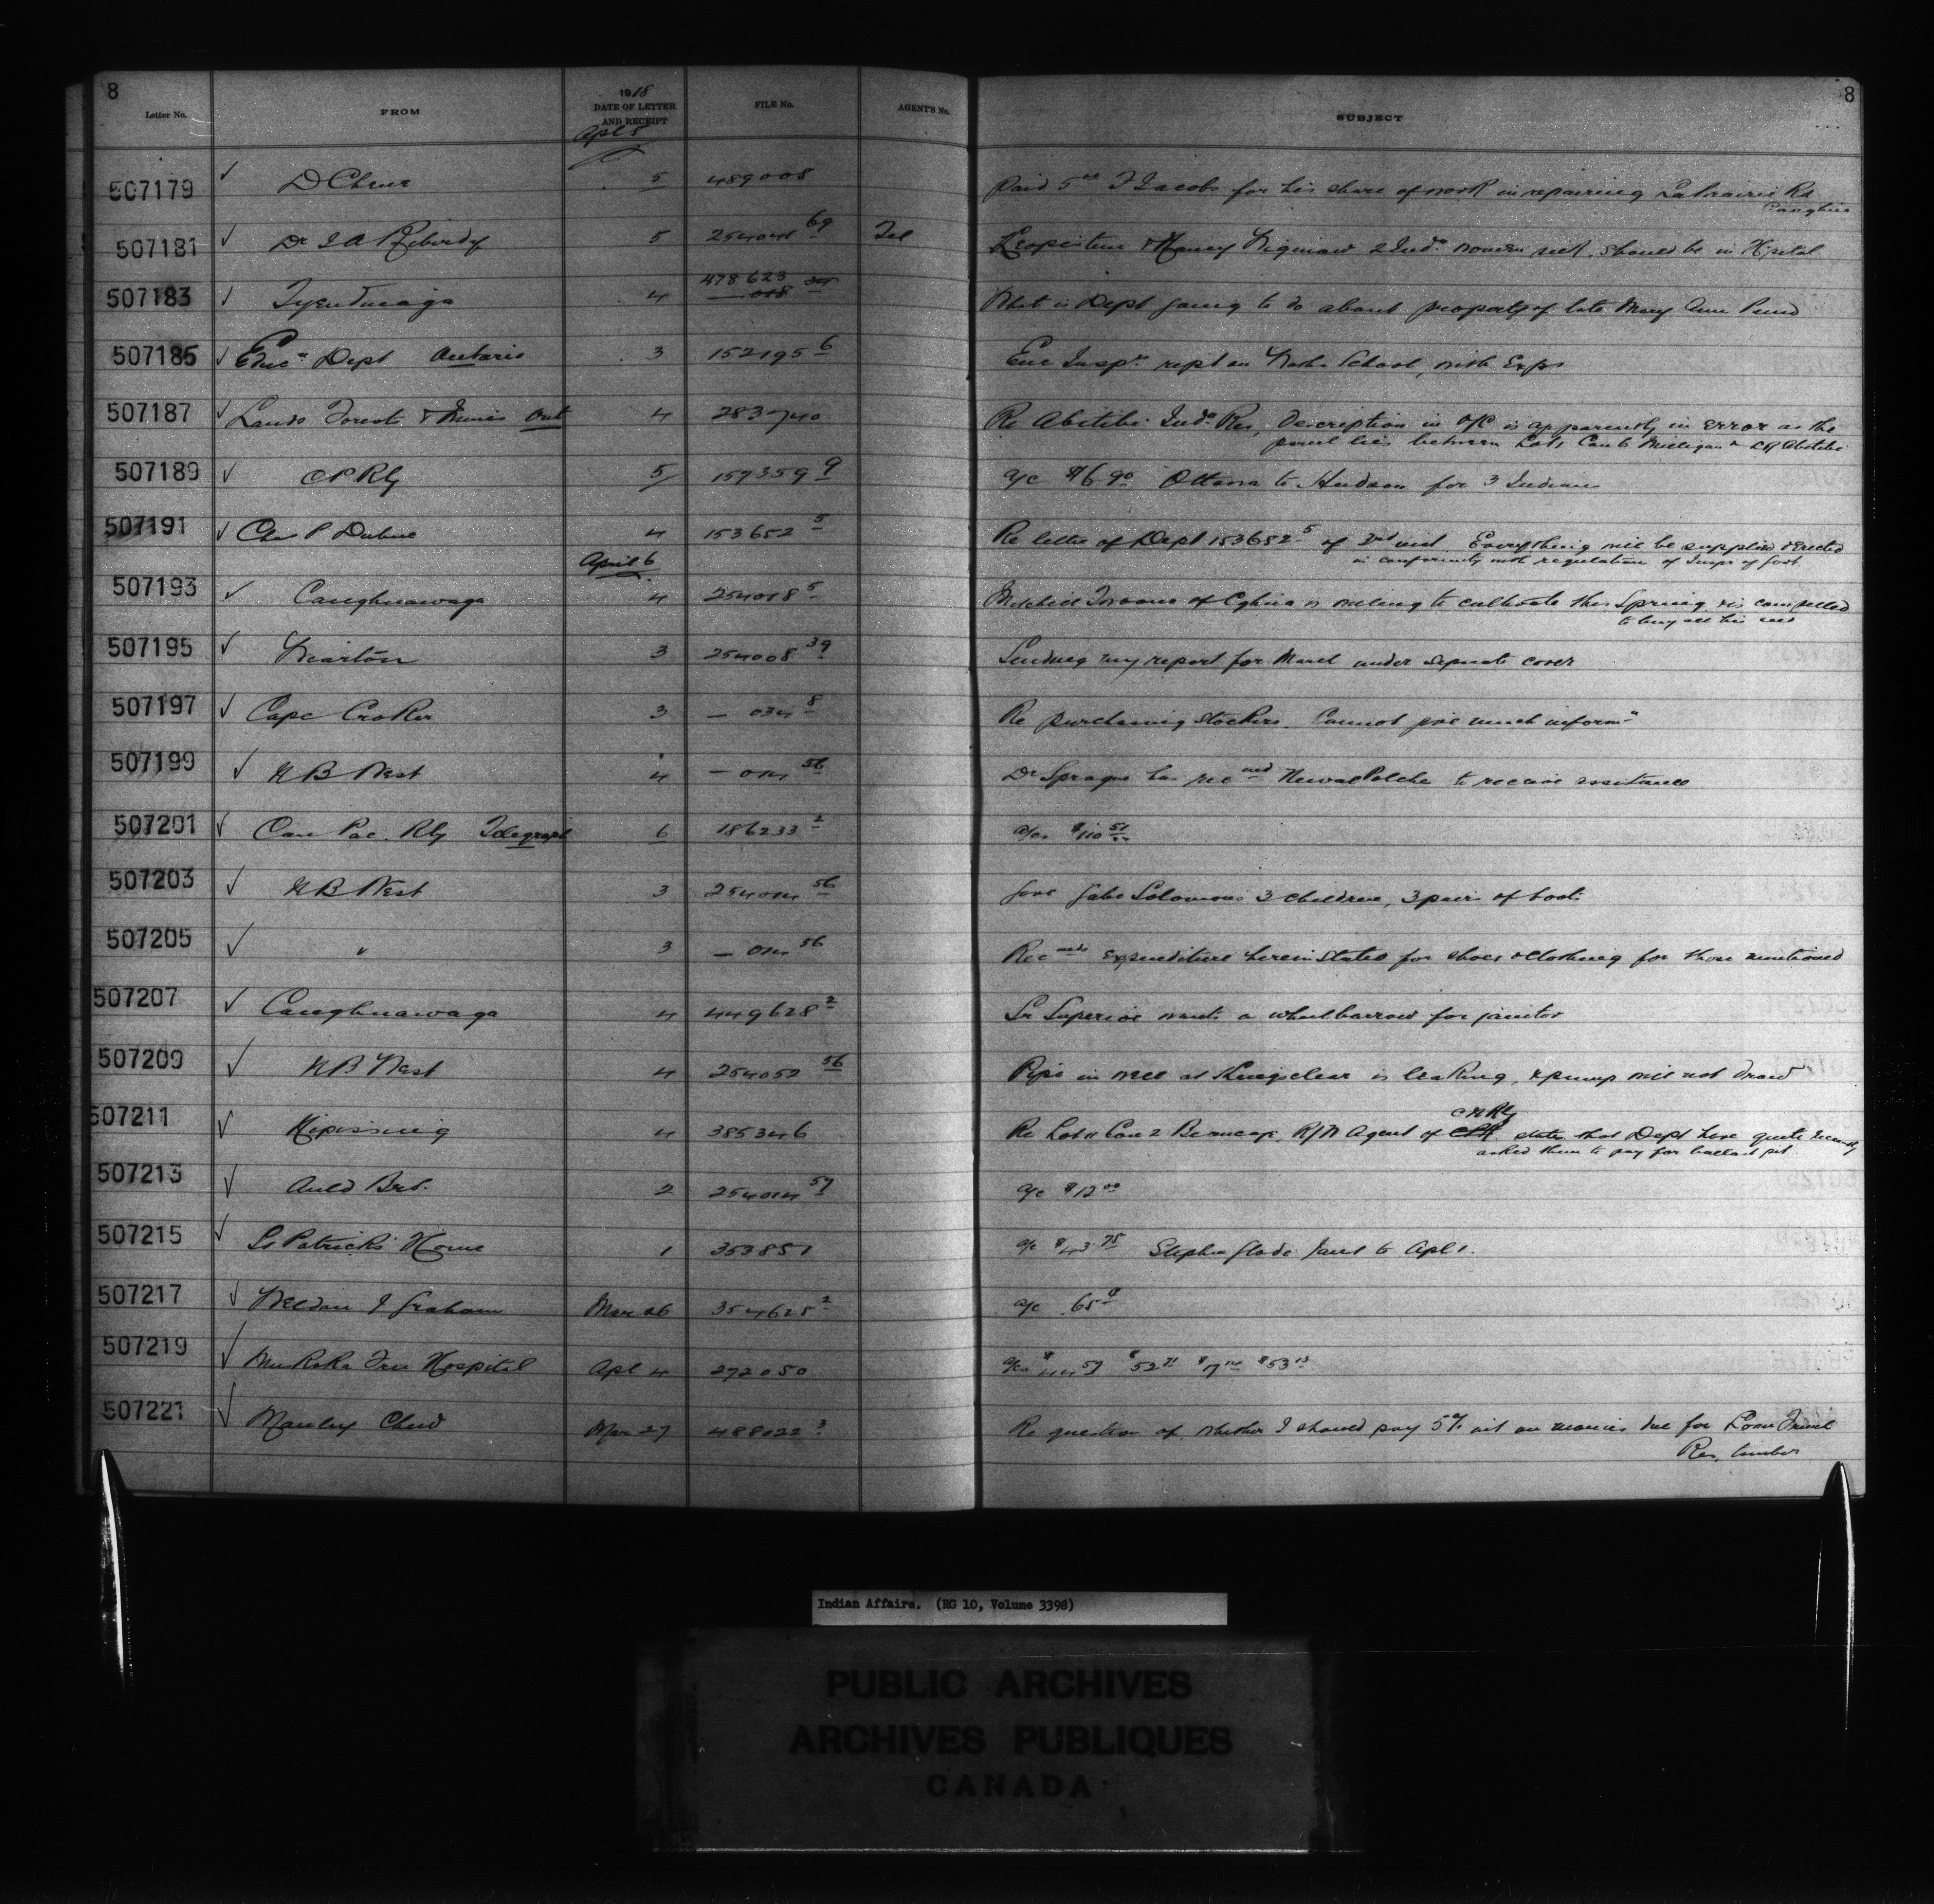 8
8
Letter No. FROM 1918 DATE OF LETTER AND RECEIPT FILE No. AGENT'S No. SUBJECT
Apl 5
507179 ✓ D 5 489008 Paid 5 00 F Jacobs for his share of work in repairing Laprairie Rd
Caughna
507181 ✓ Dr J A 5 254041 69 Tel & Nancy 2 Inda women sick, should be in Hospital
507183 ✓ Tyendinaga 4 478623 What is Dept going to do about property of late Mary Ann
507185 ✓ Educn Dept Ontario 3 152195 6 Enc Inspr rept on School, with Exps
507187 ✓ Lands Forests & Mines Ont 4 283740 Re Abitibi Inda Res, Description in O/C is apparently in error as the
parcel lies between Lot 1 Con 6 Milligan & L Abitibi
507189 ✓ C P Rly 5 157359 9 a/c $16 90 Ottawa to Hudson for 3 Indians
507191 ✓ Chas P Dubuc 4 153652 5 Re letter of Dept 153652 5 of 3rd inst Everything will be supplied & Erected
in conformity with regulation of Inspr of Govt.
April 6
507193 ✓ Caughnawaga 4 254018 5 Mitchell of Cghna is willing to cultivate this Spring, & is compelled
to buy all his seed
507195 ✓ Wiarton 3 254008 39 Sending my report for March under separate cover
507197 ✓ Cape Croker 3 — 034 8 Re purchasing Stockers. Cannot give much informn
507199 ✓ N B West 4 — 014 56 Dr Sprague has recmd Newal Polchie to receive assistance
507201 ✓ Can Pac. Rly Telegraph 6 186233 2 a/cs $110 51
507203 ✓ N B West 3 254014 56 Gave Gabe Solomons 3 children, 3 pairs of boots
507205 ✓ " 3 — 014 56 Recmds expenditure herein stated for shoes & clothing for those mentioned
507207 ✓ Caughnawaga 4 449628 2 Sr Superior wants a wheelbarrow for janitor
507209 ✓ N B West 4 254052 56 Pipe in well at Kingsclear is leaking, & pump will not draw
C N Rly
507211 ✓ Nipissing 4 385346 Re Lot 11 Con 2 R/W Agent of CPR states that Dept have quite recently
asked them to pay for ballast pit
507213 ✓ Auld Bros. 2 254014 57 a/c $12 00
507215 ✓ St Patricks Home 1 353851 a/c $43 75 Stephen Glode Jan 1 to Apl 1.
507217 ✓ Weldon J Graham Mar 26 354625 2 a/c .65¢
507219 ✓ Muskoka Free Hospital Apl 4 272050 a/cs $44 59 $52 71 $17 14 $53 13
507221 ✓ Manley Chew Mar 27 488022 3 Re question of whether I should pay 5% int on monies due for Lower French
Res. timber
Indian Affairs. (RG 10, Volume 3398)
PUBLIC ARCHIVES
ARCHIVES PUBLIQUES
CANADA